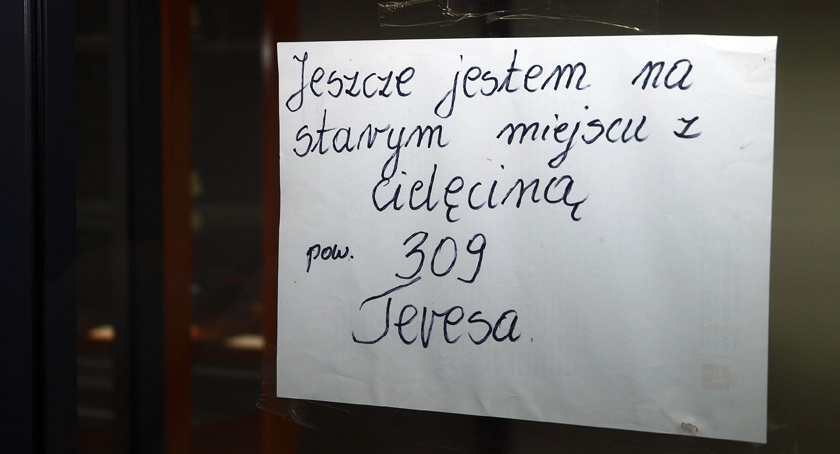 Jeszcze jestem na
starym miejscu z
cielęciną
pow. 309
Teresa.